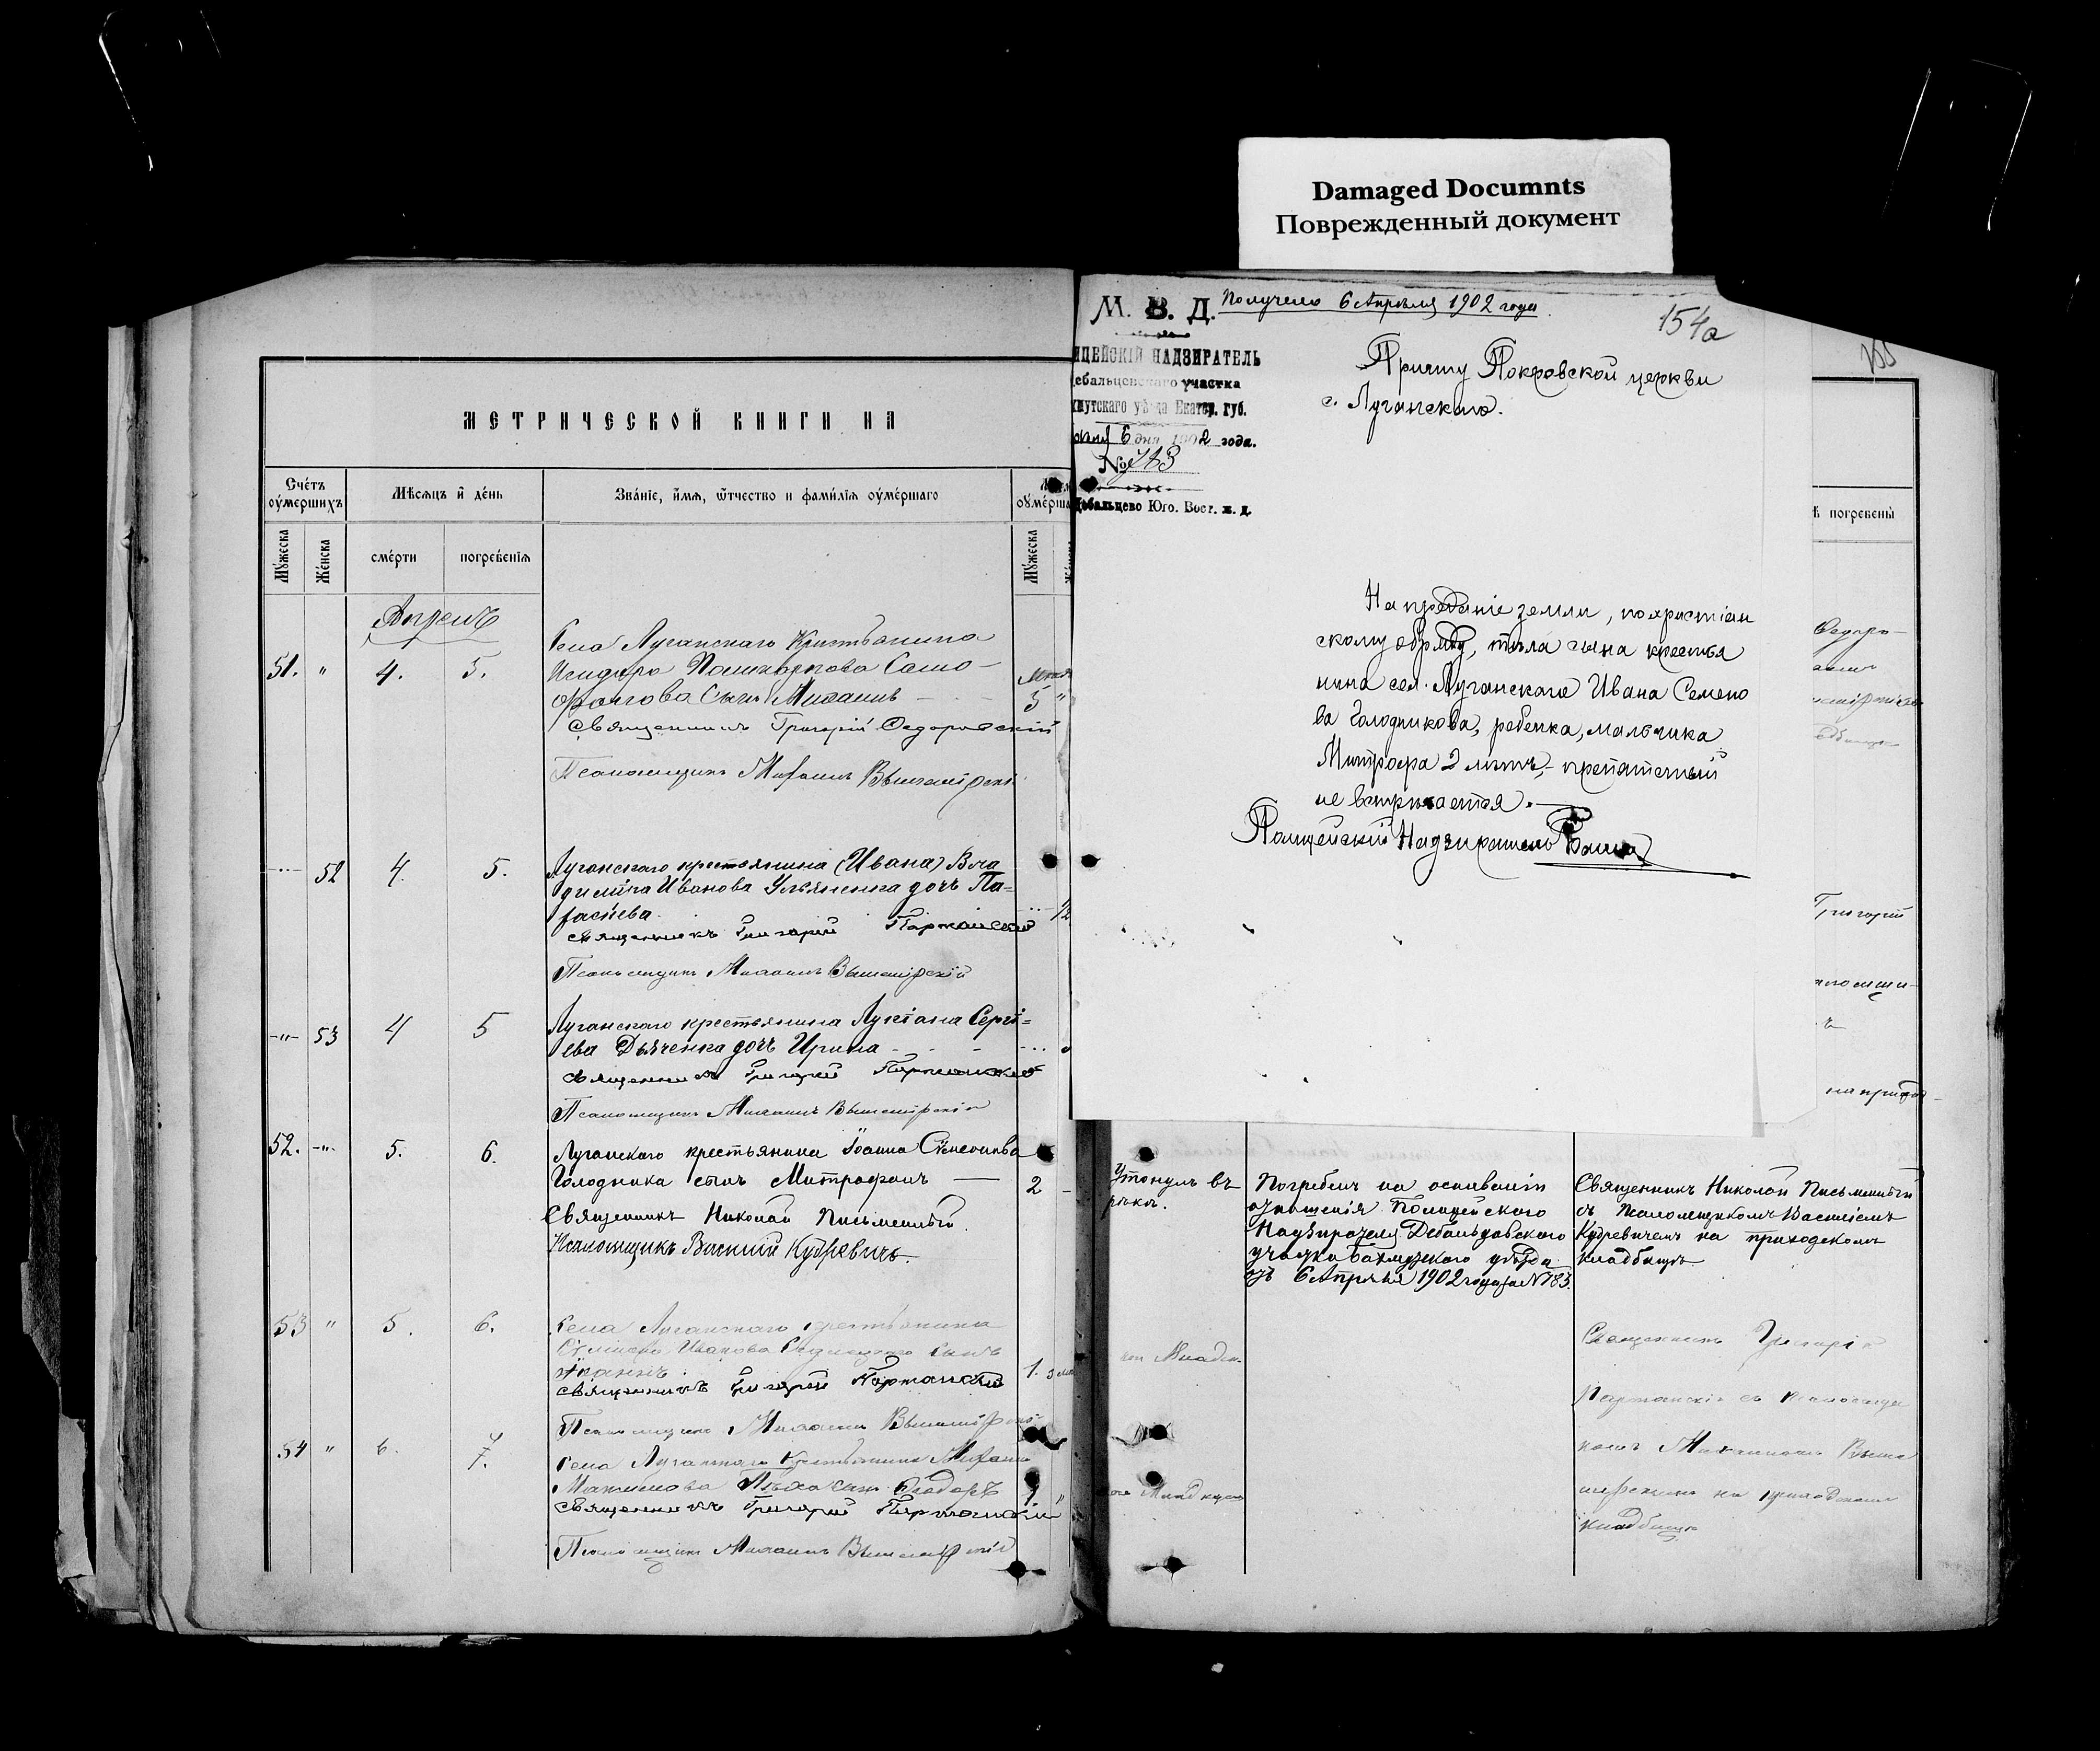 Damaged Documnts
Поврежденный документ
МЕТРИЧЕСКОЙ КНИГИ НА
Счётъ оу҆ме́ршихъ
Мѣсяцъ и҆ де́нь
Зва́нїе, и҆́мя, ѻ҆́тчество и фами́лїя оу҆ме́ршаго
оу҆ме́рша
Му́жеска
Же́нска
сме́рти
погребе́нїя
Му́жеска
Апрель
51. " 4. 5.
Села Луганскаго Крестьянина
Исидора Само-
фалова сынъ Михаилъ
5 "
Священникъ Григорій
Псаломщикъ Михаилъ Вышемірскій
52 4. 5.
Луганскаго крестьянина (Ивана) Вла
диміра Иванова Ульяненка дочь Па-
раскева
священникъ Григорій Партанскій
Псаломщикъ Михаилъ Вышемірскій
-"- 53 4 5
Луганскаго крестьянина Лукіана Сергі-
ева Дьяченка дочь Ирина
священникъ Григорій Партанскій
Псаломщикъ Михаилъ Вышемірскій
52. -"- 5. 6.
Луганского крестьянина Іоанна Сѵмеонова
Голодника сынъ Митрофанъ
2 -
Священникъ Николай Письменный.
Псаломщикъ Василій Кудревичъ.
53 " 5. 6.
Села Луганскаго крестьянина
Иванова сынъ
Іоаннъ
1.
священникъ Григорій Партанскій
Псаломщикъ Михаилъ Вышемірскій
54 " 6. 7.
Села Луганскаго Крестьянина
Максимова сынъ Ѳеодоръ
1 "
священникъ Григорій Партанскій
Псаломщикъ Михаилъ Вышемірскій
М. В. Д.
Получено 6 Апрѣля 1902 года.
154а
ИЦЕЙСКІЙ НАДЗИРАТЕЛЬ
ебальцевскаго участка
хмутскаго уѣзда Екатер. губ.
6 дня 1902 года.
№ 783
Дебальцево Юго. Вост. ж. д.
Причту Покровской церкви
с. Луганскаго.
На преданіе земли, по христіан
скому обряду, тѣла сына крестья
нина сел. Луганскаго Ивана Семено
ва Голодникова, ребенка, мальчика
Митрофа 2 лѣтъ, - препятствій
не встрѣчается.
Полицейскій Надзиратель
155
ѣ погребены́
Григорій
аломщи-
на приход-
Утонулъ въ
рѣкѣ.
Погребенъ на основаніи
отношенія Полицейского
Надзирателя Дебальцовского
участка Бахмутского уѣзда
отъ 6 Апрѣля 1902 года за № 783.
Священникъ Николай Письменный
съ Псаломщикомъ Василіемъ
Кудревичемъ на приходскомъ
кладбищѣ
Священникъ Григорій
Партанскій съ псаломщи
комъ Михаиломъ Выше
мірскимъ на приходскомъ
кладбищѣ